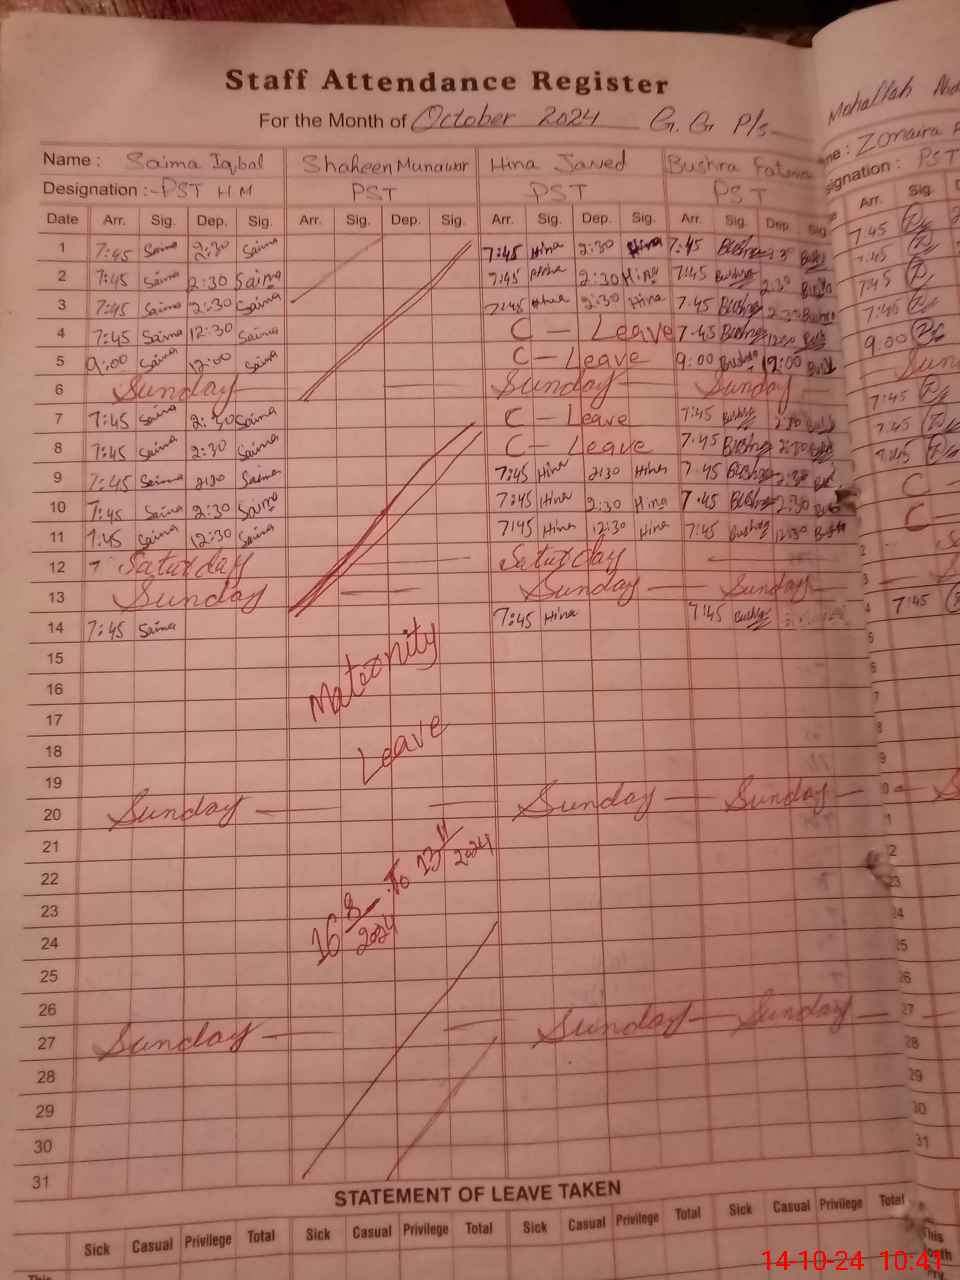 Staff Attendance Register
For the Month of October 2024 G. G P/s
Name : Saima Iqbal Shaheen Munawar Hina Javed Bushra Fatima
Designation :- PST H M PST PST PST
Date Arr. Sig. Dep. Sig. Arr. Sig. Dep. Sig. Arr. Sig. Dep. Sig. Arr. Sig. Dep. Sig
1 7:45 Saima 2:30 Saima 7:45 Hina 2:30 Hina 7:45 Bushra
2 7:45 Saima 2:30 Saima 7:45 Hina 2:30 Hina 7:45 Bushra 2:30
3 7:45 Saima 2:30 Saima 7:45 Hina 2:30 Hina 7.45 Bushra 2:30 Bushra
4 7:45 Saima 12:30 Saima C - Leave 7.45 Bushra
5 9:00 Saima 12:00 Saima C - Leave 9:00 Bushra 12:00
6 Sunday Sunday Sunday
7 7:45 Saima 2:30 Saima C - Leave 7:45 Bushra 2:30
8 7:45 Saima 2:30 Saima C - Leave 7.45 Bushra 2:30
9 7:45 Saima 2:30 Saima 7:45 Hina 2:30 Hina 7.45 Bushra 2:30
10 7:45 Saima 2:30 Saima 7:45 Hina 2:30 Hina 7.45 Bushra 2:30
11 7:45 Saima 12:30 Saima 7:45 Hina 12:30 Hina 7:45 Bushra 12:30
12 Saturday Saturday
13 Sunday Sunday Sunday
14 7:45 Saima 7:45 Hina 7:45 Bushra
15
16
17
18
19
20 Sunday Sunday Sunday
21
22
23
24
25
26
27 Sunday Sunday Sunday
28
29
30
31
Maternity
Leave
16 8/2024 To 13 11/2024
STATEMENT OF LEAVE TAKEN
Sick Casual Privilege Total Sick Casual Privilege Total Sick Casual Privilege Total Sick Casual Privilege Total
This
Mohallah
Zonaira
PST
Arr. Sig.
7.45
7.45
7:45
7:45
9.00
7:45
7.45
7:45
C
C
7:45
14-10-24 10:41